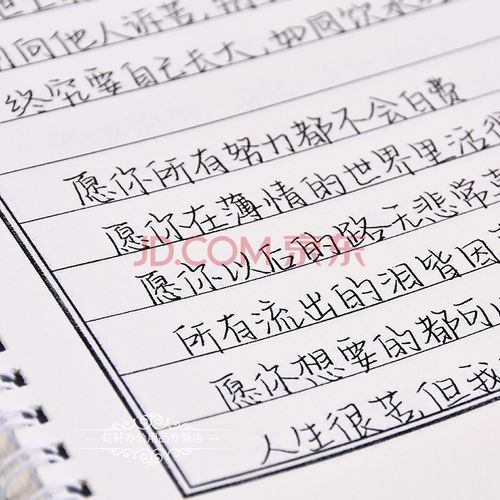 向他人诉苦,
终究要自己长大,如同饮水
愿你所有努力都不会白费
愿你在薄情的世界里活
愿你以后的路无非常
JD.COM 京东
所有流出的泪皆因
愿你想要的都可
人生很苦,但我
虹轩办公用品专营店